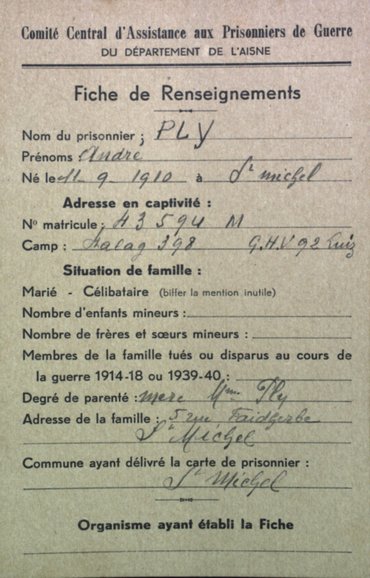 Comité Central d'Assistance aux Prisonniers de Guerre
DU DÉPARTEMENT DE L'AISNE
Fiche de Renseignements
Nom du prisonnier : PLY
Prénoms André
Né le 11 9 1910 à St michel
Adresse en captivité :
No matricule : 43594 M
Camp : 398 G.H.V 92
Situation de famille :
Marié - Célibataire (biffer la mention inutile)
Nombre d'enfants mineurs :
Nombre de frères et sœurs mineurs :
Membres de la famille tués ou disparus au cours de
la guerre 1914-18 ou 1939-40 :
Degré de parenté : mere Mme Ply
Adresse de la famille : 5 rue Faidgerbe
St Michel
Commune ayant délivré la carte de prisonnier :
St Michel
Organisme ayant établi la Fiche